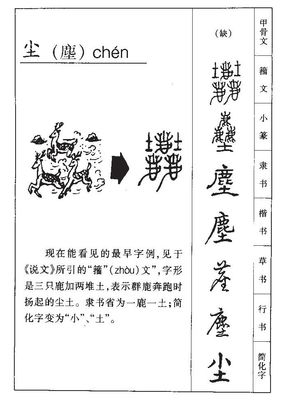 尘（塵）chén
现在能看见的最早字例，见于
《说文》所引的“籀”(zhòu)文”，字形
是三只鹿加两堆土，表示群鹿奔跑时
扬起的尘土。隶书省为一鹿一土；简
化字变为“小”、“土”。
（缺）
甲骨文
籀文
小篆
隶书
楷书
草书
行书
简化字
塵
塵
塵
尘